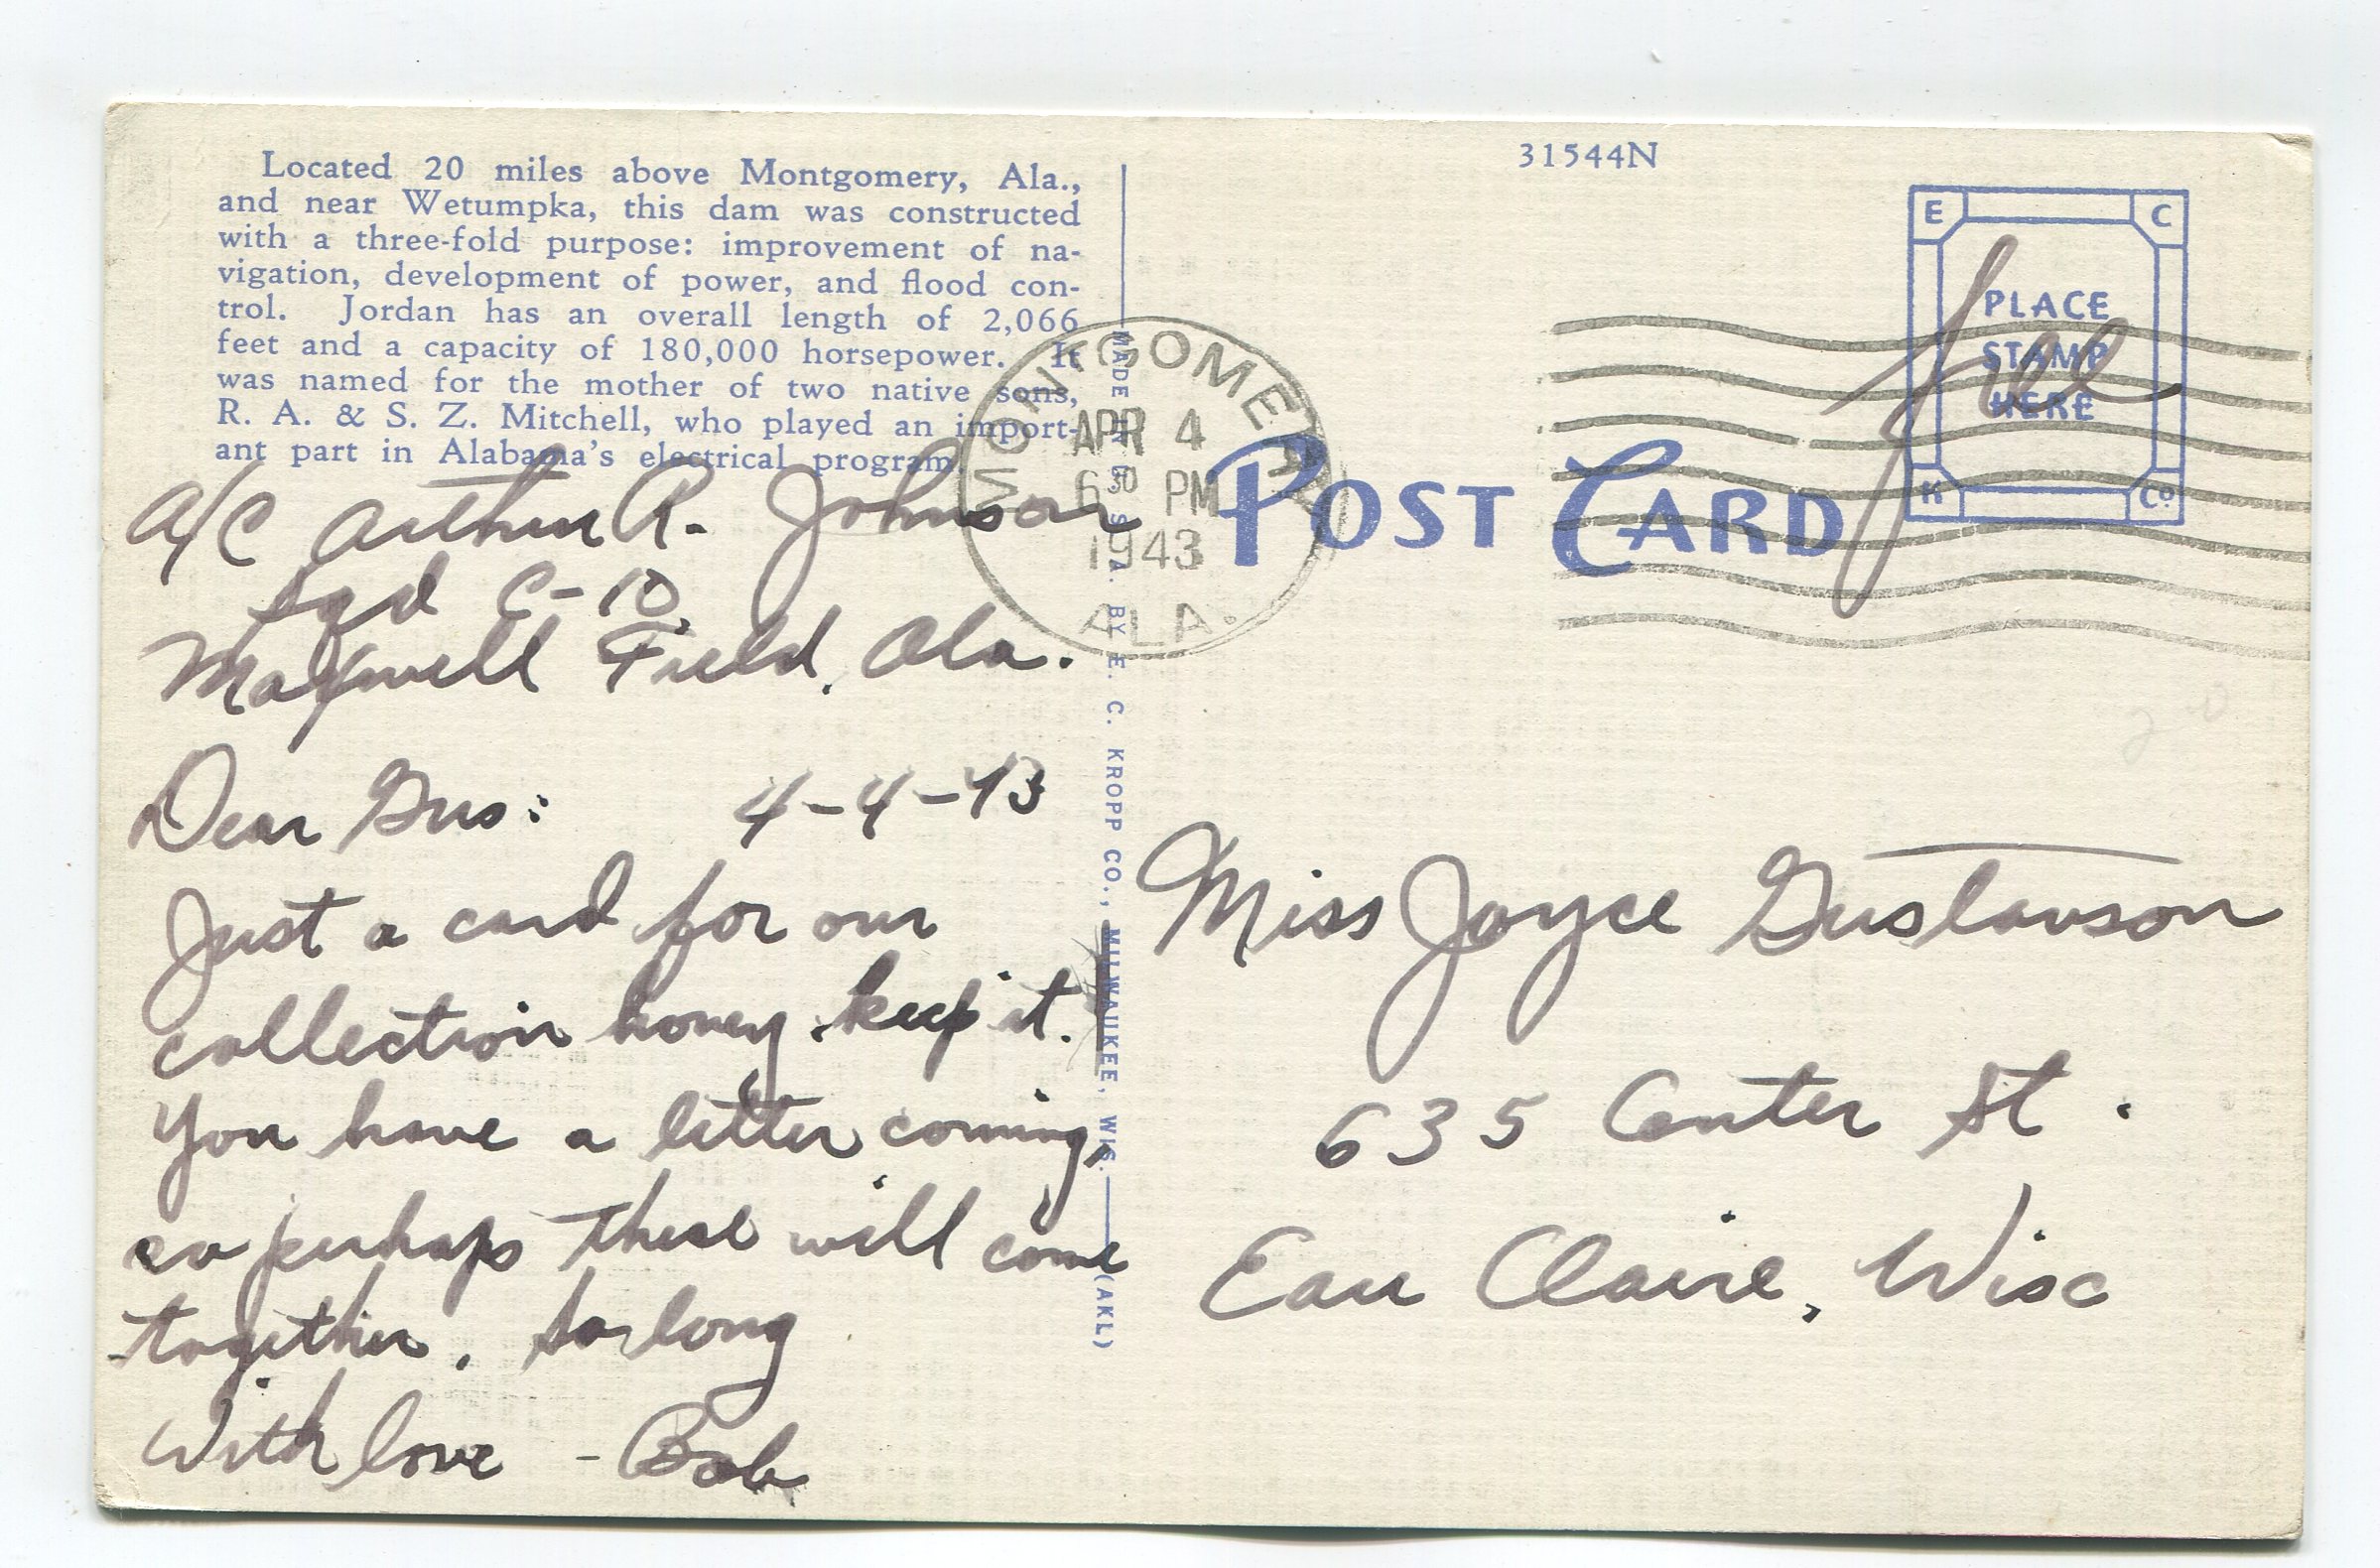 Located 20 miles above Montgomery, Ala.,
and near Wetumpka, this dam was constructed
with a three-fold purpose: improvement of na-
vigation, development of power, and flood con-
trol. Jordan has an overall length of 2,066
feet and a capacity of 180,000 horsepower. It
was named for the mother of two native sons,
R. A. & S. Z. Mitchell, who played an import-
ant part in Alabama's electrical program.
A/C Arthur R. Johnson
Sqd C-10
Maxwell Field, Ala.
Dear Gus: 4-4-43
Just a card for our
collection honey. keep it.
You have a letter coming,
so perhaps these will come
together. So long
With love - Bob
MADE IN U. S. A. BY E. C. KROPP CO., MILWAUKEE, WIS. (AKL)
31544N
E C
PLACE
STAMP
HERE
K Co
free
MONTGOMERY
APR 4
6 30 PM
1943
ALA.
POST CARD
20
Miss Joyce Gustavson
635 Center St.
Eau Claire, Wisc